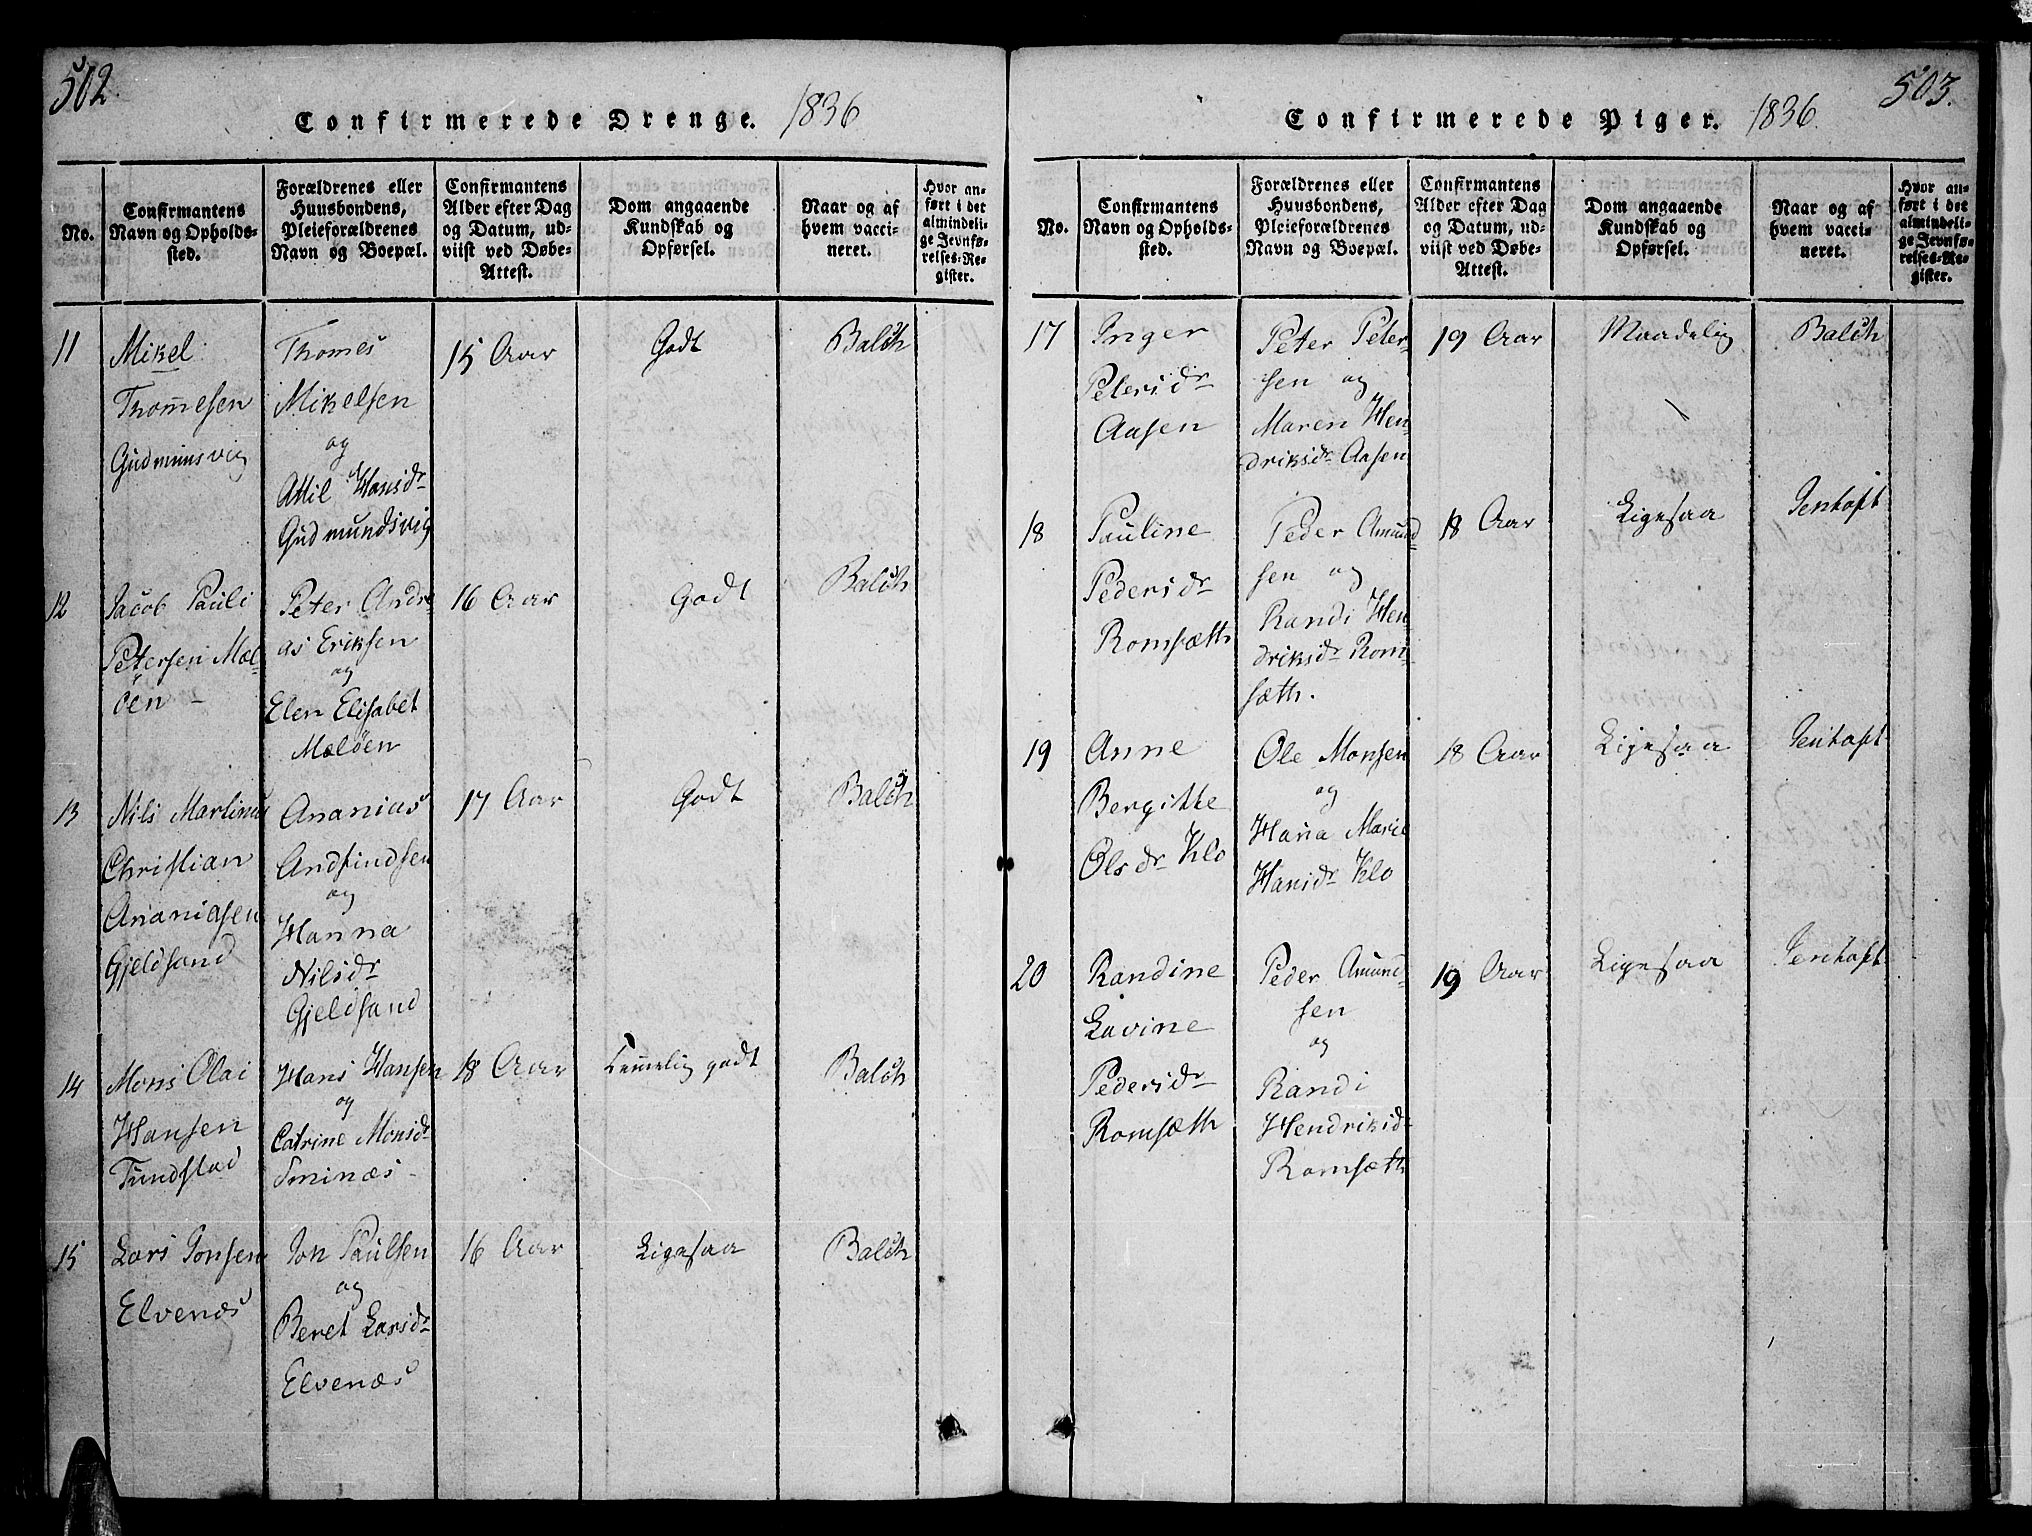 502.
Confirmerede Drenge. 1836
No.
Confirmantens
Navn og Opholds-
sted.
Forældrenes eller
Huusbondens,
Pleieforældrenes
Navn og Boepæl.
Confirmantens
Alder efter Dag
og Datum, ud-
viist ved Døbe-
Attest.
Dom angaaende
Kundskab og
Opførsel.
Naar og af
hvem vacci-
neret.
Hvor an-
ført i det
almindeli-
ge Jevnfø-
relses-Re-
gister.
11
Mikel
Thomesen
Gudmunsvig
Thomes
Mikelsen
og
Attil Hansdr
Gudmundsvig
15 Aar
Godt
Balch
12
Jacob Pauli
Petersen Mæl-
öen -
Peter Andre
as Eriksen
og
Elen Elisabet
Mælöen
16 Aar
Godt
Balch
13
Nils Martinus
Christian
Ananiasen
Gjeldsand
Ananias
Andfindsen
og
Hanna
Nilsdr
Gjeldsand
17 Aar
Godt
Balch
14
Mons Olai
Hansen
Tundstad
Hans Hansen
og
Catrine Monsdr
Sminæs -
18 Aar
Temmelig godt
Balch
15
Lars Jonsen
Elvenæs
Jon Paulsen
og
Beret Larsdr
Elvenæs
16 Aar
Ligesaa
Balch
503.
Confirmerede Piger. 1836.
No.
Confirmantens
Navn og Opholds-
sted.
Forældrenes eller
Huusbondens,
Pleieforældrenes
Navn og Boepæl.
Confirmantens
Alder efter Dag
og Datum, ud-
viist ved Døbe-
Attest.
Dom angaaende
Kundskab og
Opførsel.
Naar og af
hvem vacci-
neret.
Hvor an-
ført i det
almindeli-
ge Jevnfø-
relses-Re-
gister.
17
Inger
Petersdr
Aasen
Peter Peter-
sen og
Maren Hen-
driksdr Aasen
19 Aar
Maadelig
Balch
18
Pauline
Pedersdr
Romsæth
Peder Amund-
sen og
Randi Hen-
driksdr Rom-
sæth.
18 Aar
Ligesaa
Jentoft
19
Anne
Bergitte
Olsdr Klo
Ole Monsen
og
Hana Marie
Hansdr Klo
18 Aar
Ligesaa
Jentoft
20
Randine
Lavine
Pedersdr
Romsæth
Peder Amund-
sen
og
Randi
Hendriksdr
Romsæth
19 Aar
Ligesaa
Jentoft